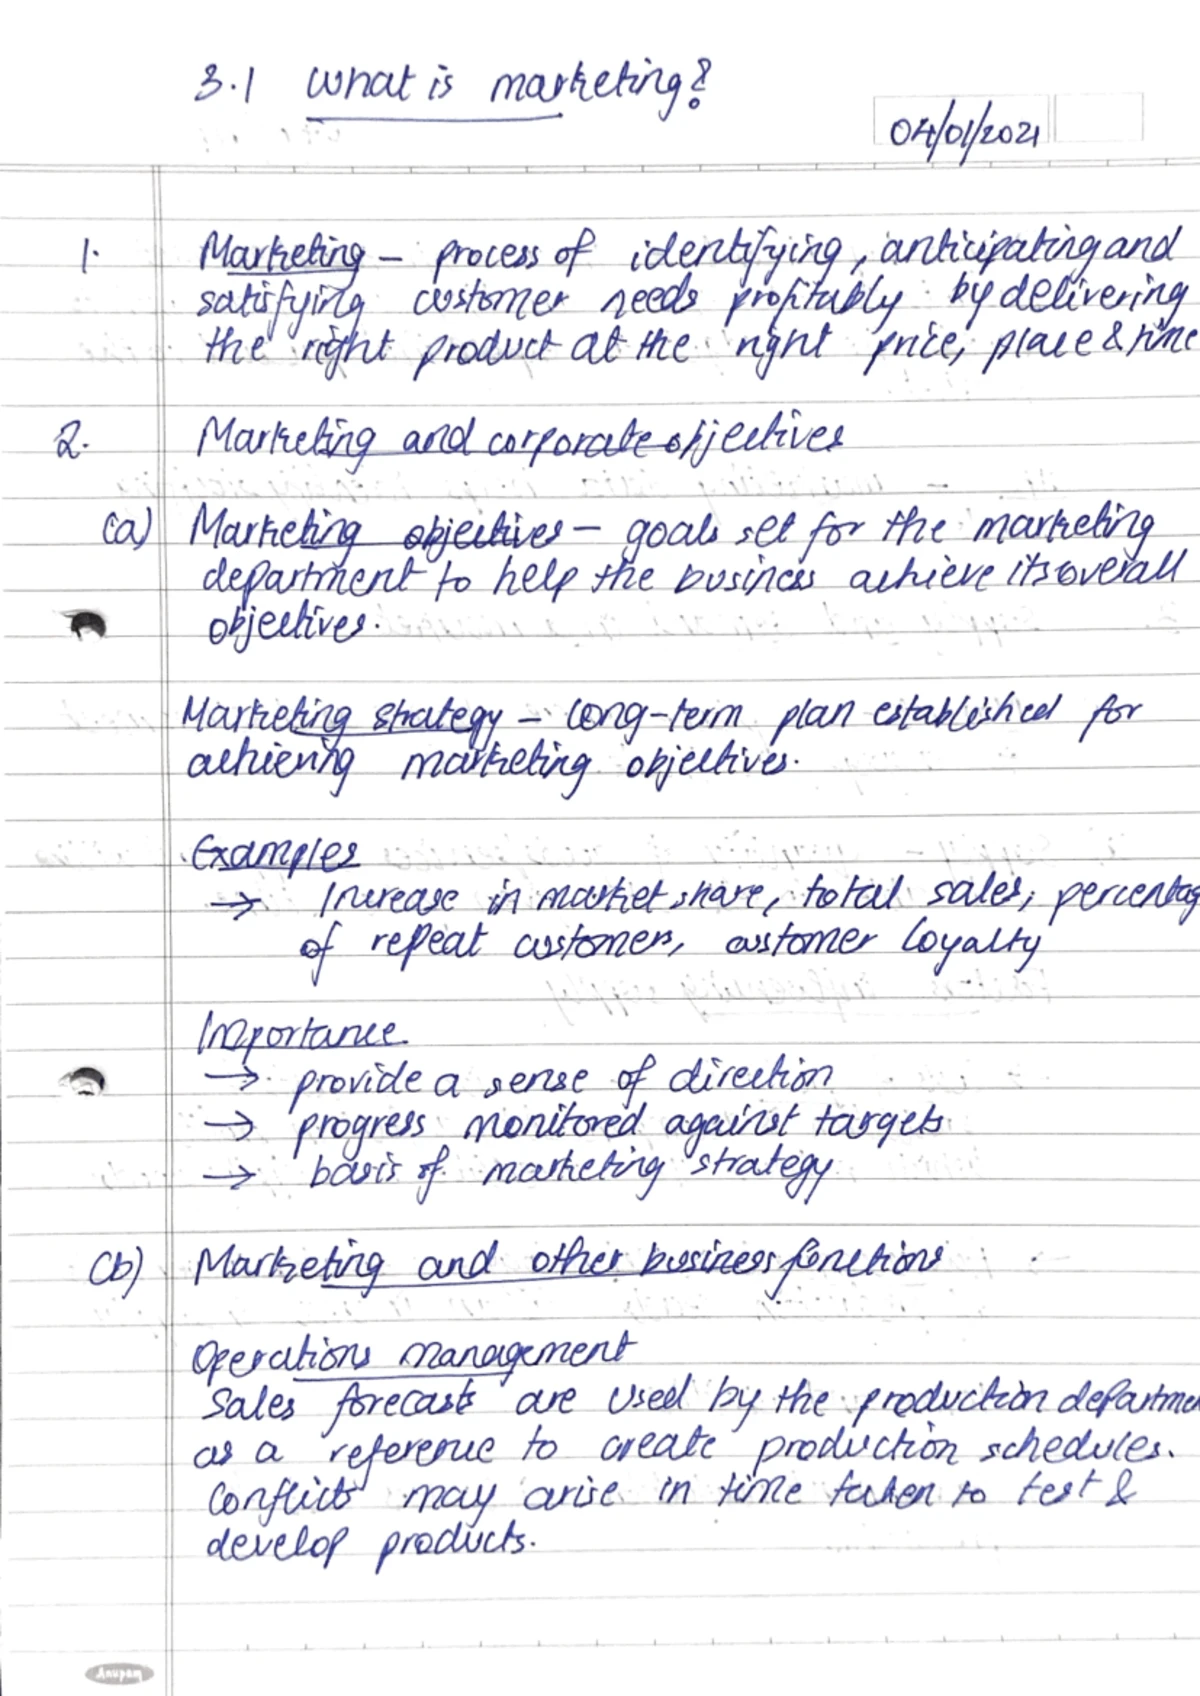 3.1 What is marketing?
04/01/2021
1. Marketing – process of identifying, anticipating and
satisfying customer needs profitably by delivering
the right product at the right price, place & time
2. Marketing and corporate objectives
(a) Marketing objectives – goals set for the marketing
department to help the business achieve its overall
objectives.
Marketing strategy – long-term plan established for
achieving marketing objectives.
Examples
→ Increase in market share, total sales, percentag
of repeat customers, customer loyalty
Importance
→ provide a sense of direction
→ progress monitored against targets
→ basis of marketing strategy
(b) Marketing and other business functions
Operations management
Sales forecasts are used by the production departme
as a reference to create production schedules.
Conflicts may arise in time taken to test &
develop products.
Anupam